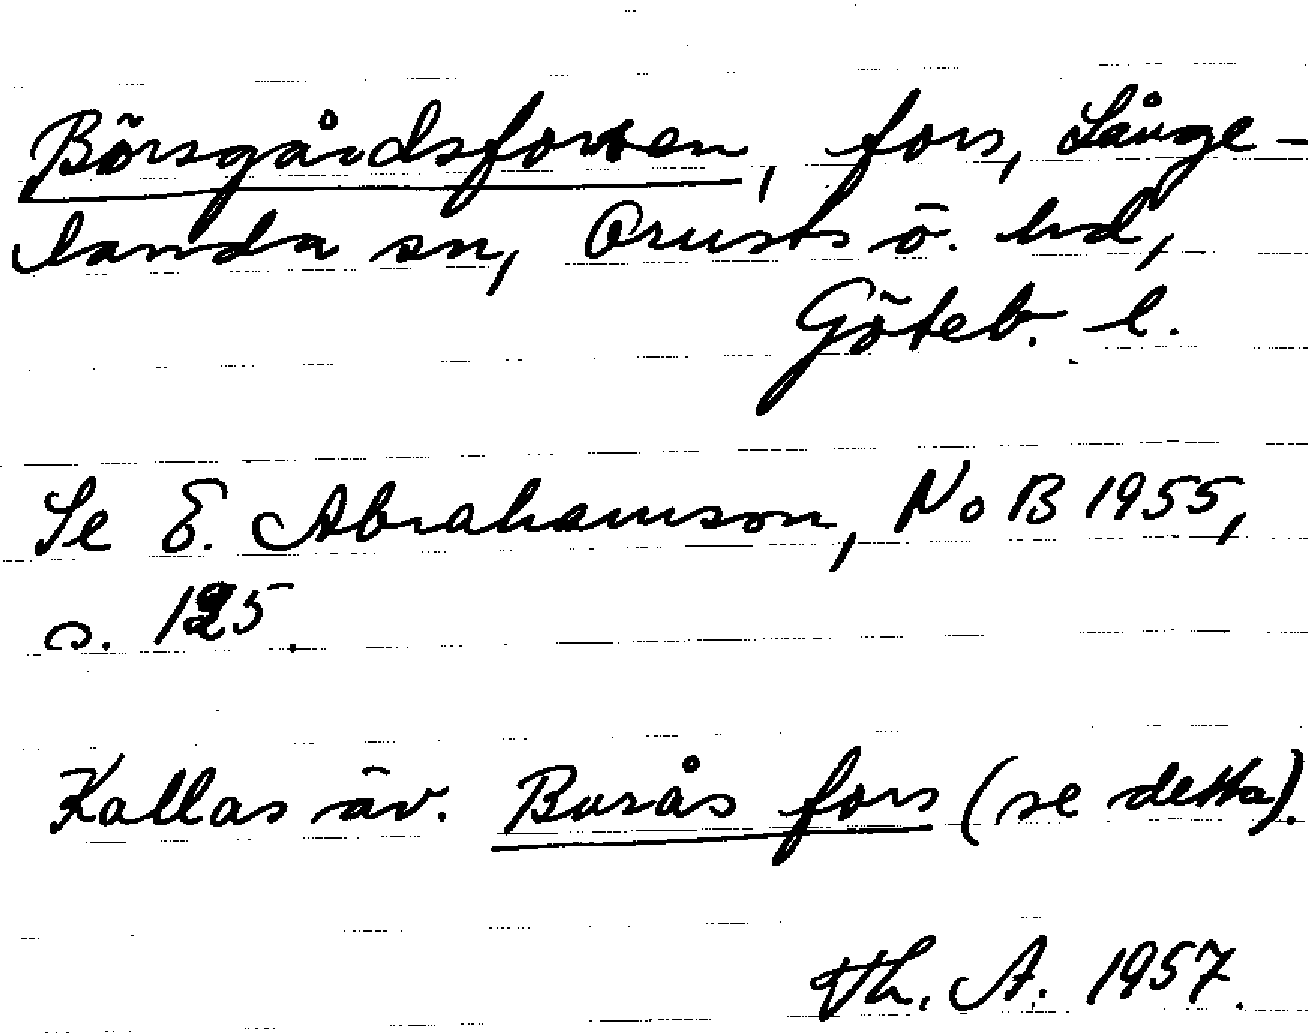 Börsgårdsforsen, fors, Långe-
landa sn, Orusts ö. hd,
Göteb. l.
Se E. Abrahamson, NoB 1955,
s. 125.
Kallas äv. Burås fors (se detta).
Th. A. 1957.